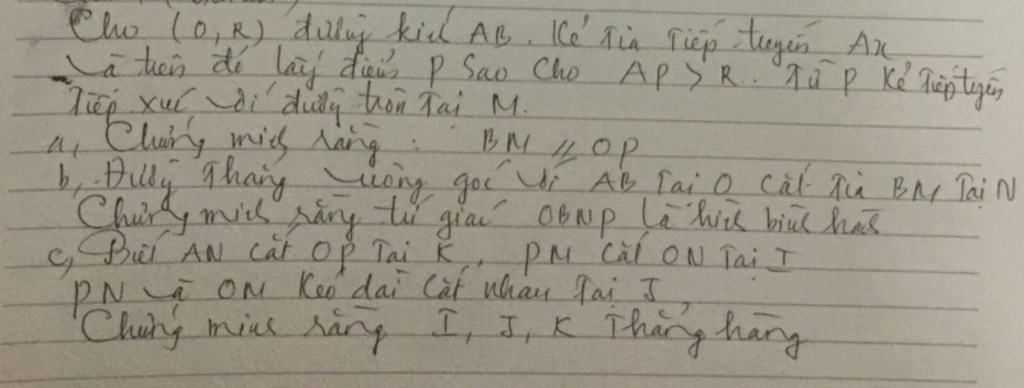 Cho (O, R) đường kính AB. Kẻ Tia Tiếp tuyến Ax
và trên đó lấy điểm P Sao Cho AP > R. Từ P Kẻ Tiếp tuyến
Tiếp xúc với đường tròn Tại M.
a, Chứng minh rằng : BM // OP
b, Đường Thẳng vuông góc với AB Tại O Cắt Tia BM Tại N
Chứng minh rằng tứ giác OBNP là hình bình hành
c, Biết AN Cắt OP Tại K, PM Cắt ON Tại I
PN và OM Kéo dài Cắt nhau Tại J
Chứng minh rằng I, J, K Thẳng hàng